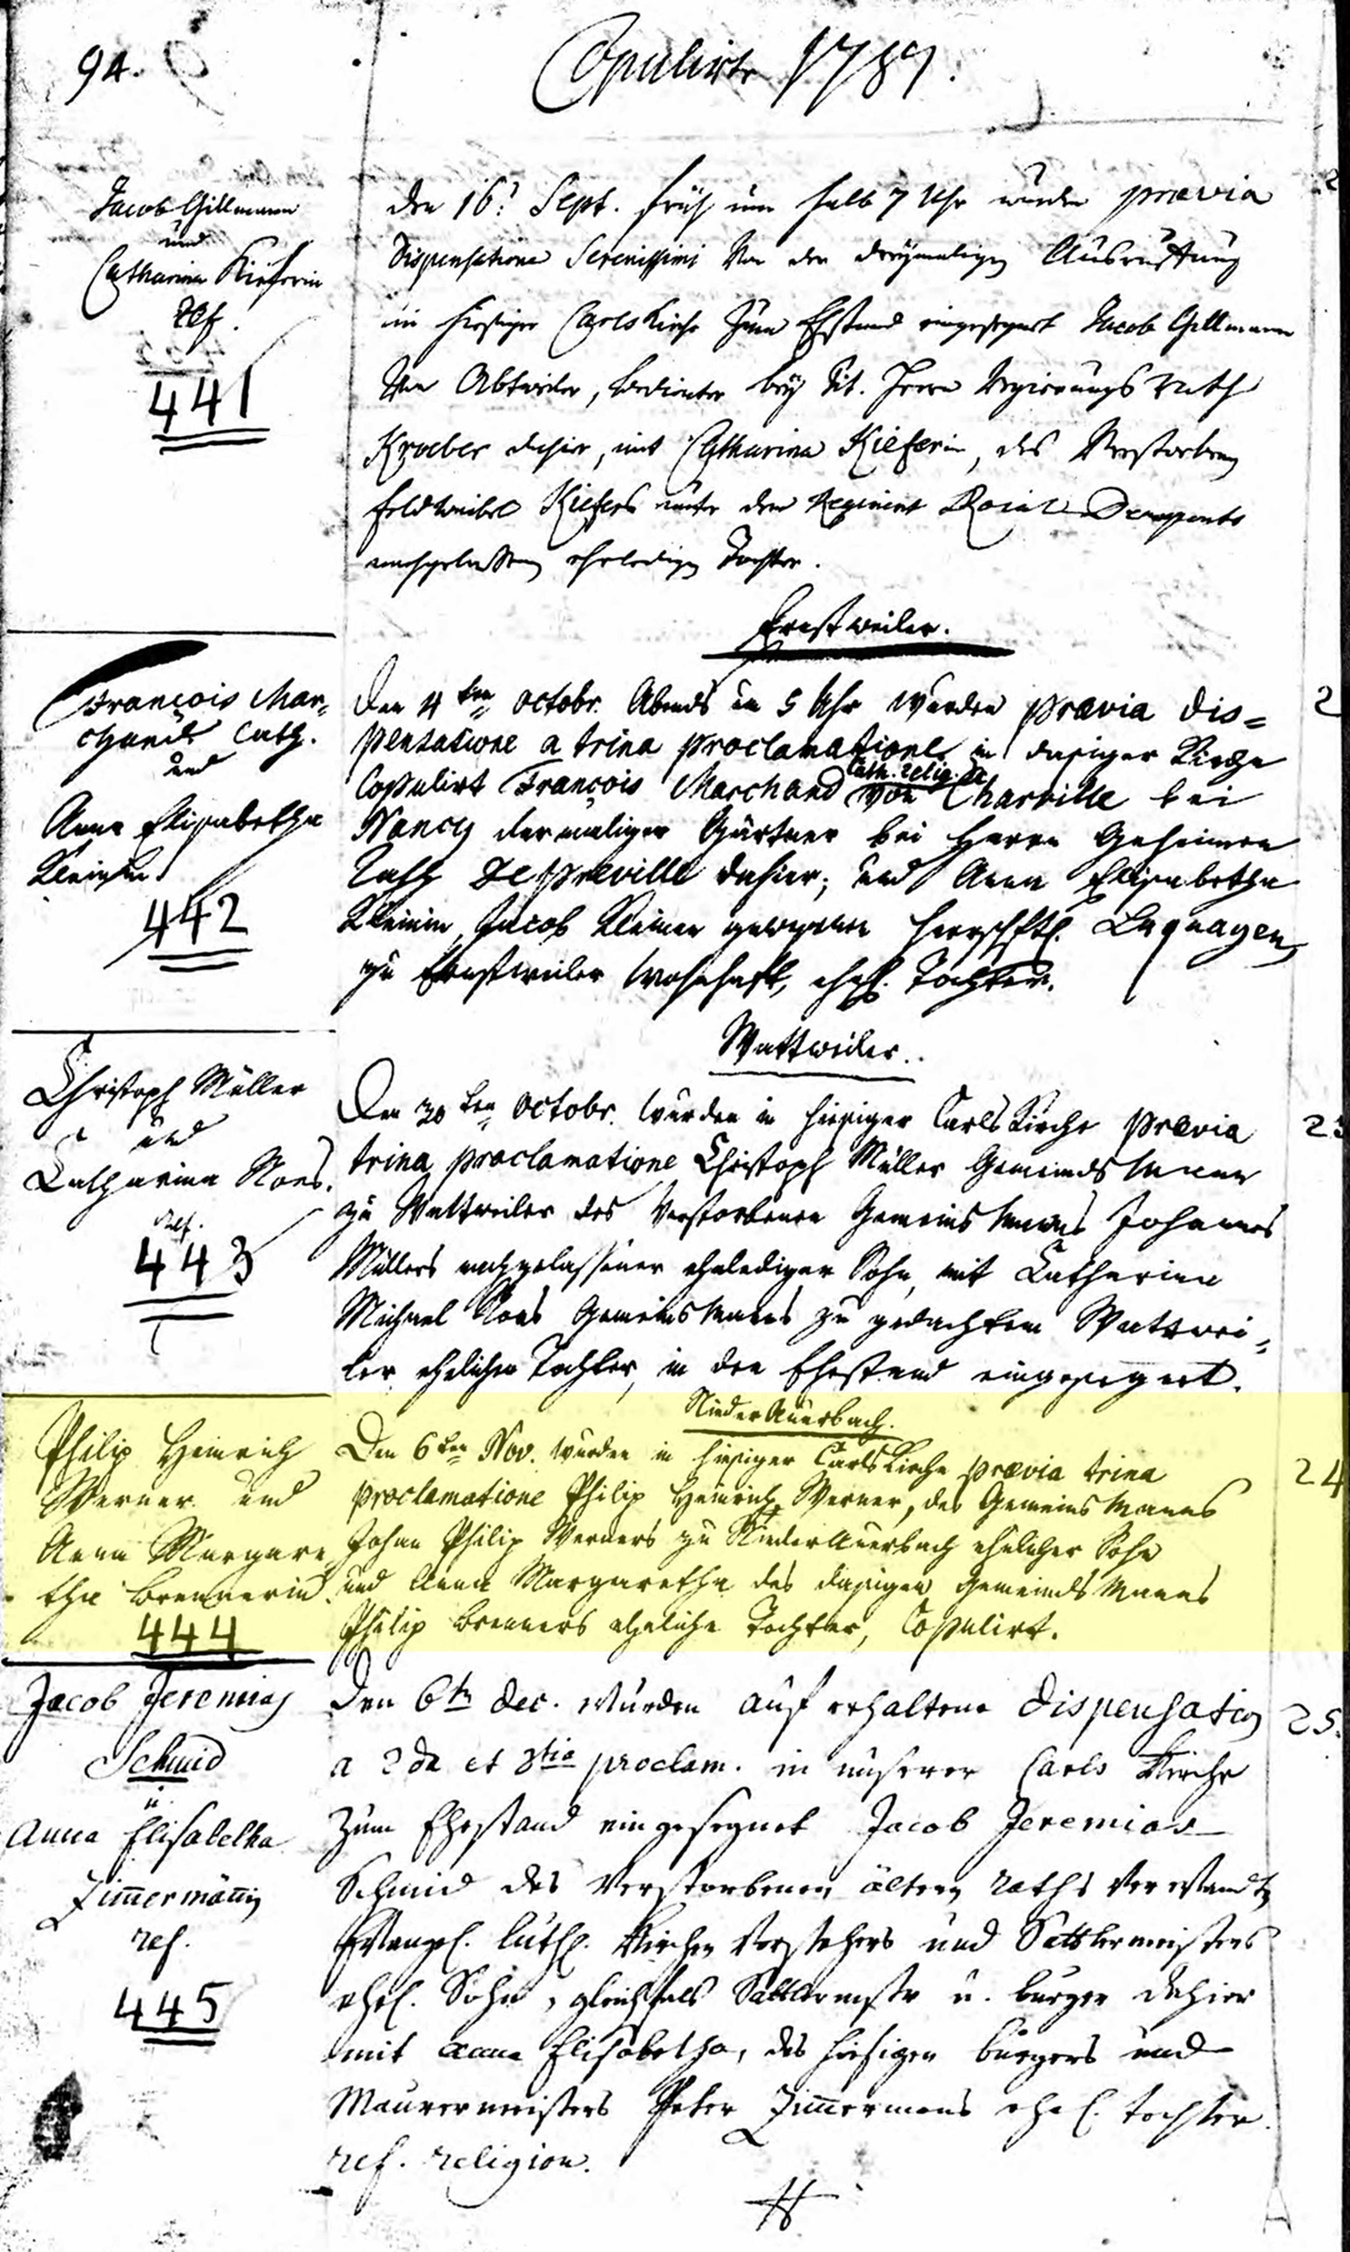 94.
Copulirte 1789.
Jacob Gillmann
und
Catharina Kieferin
ref.
441
Den 16. Sept. früh um halb 7 Uhr wurden praevia
Dispensatione Serenissimi von der dreymaligen Ausrufung
in hiesiger Carls Kirche zum Ehstand eingesegnet Jacob Gillmann
von Abtweiler, bedienter bey Tit. Herrn Regierungs Rath
Kroeber dahier, mit Catharina Kieferin, des Verstorbenen
Feldwaibel Kiefers unter dem Regiment Roial Deuxponts
nachgelassenen eheledigen Tochter.
Ernstweiler.
François Mar-
chand Cath.
und
Anna Elisabetha
Kleinin
442
Den 4ten octobr. Abends um 5 Uhr wurden praevia dis=
pensatione a trina proclamatione in dasiger Kirche
Copulirt François Marchand cath. relig. von Charville bei
Nancy dermaliger Gärtner bei Herrn Geheimen
Rath de Preville dahier, und Anna Elisabetha
Kleinin, Jacob Kleiner gewesenen herrschftl.
zu Ernstweiler wohnhaft, ehl. Tochter.
Wattweiler.
Christoph Müller
und
Catharina
ref.
443
Den 30ten Octobr. wurden in hiesiger Carls Kirche praevia
trina proclamatione Christoph Müller Gemeinds Mann
zu Wattweiler des verstorbenen Gemeins Manns Johannes
Müllers nachgelassener eheledigen Sohn, mit Catharina
Michael Gemeins Manns zu gedachtem Wattwei=
ler ehelichen Tochter, in den Ehestand eingesegnet.
NiederAuerbach.
Philip Heinrich
Werner und
Anna Margare
tha Brennerin.
444
Den 6ten Nov. wurden in hiesiger Carls Kirche praevia trina
24
proclamatione Philip Heinrich Werner, des Gemeins Manns
Johann Philip Werners zu NiederAuerbach ehelicher Sohn
und Anna Margaretha des dasigen Gemeinds Manns
Philip Brenners eheliche Tochter, Copulirt.
Jacob Jeremias
Schmid
u.
Anna Elisabetha
Zimmermänin
ref.
445
Den 6ten dec. wurden auf erhaltene dispensation
25.
a 2da et 3tia proclam. in unserer Carls Kirche
zum Ehestand eingesegnet Jacob Jeremias
Schmid des verstorbenen ältern raths verwandten
Evangel. luth. Kirchen Vorstehers und Sattlermeisters
ehel. Sohn, gleichfals Sattlermstr u. burger dahier
mit Anna Elisabetha, des hiesigen bürgers und
Maurermeisters Peter Zimmermans ehel. tochter.
ref. religion.